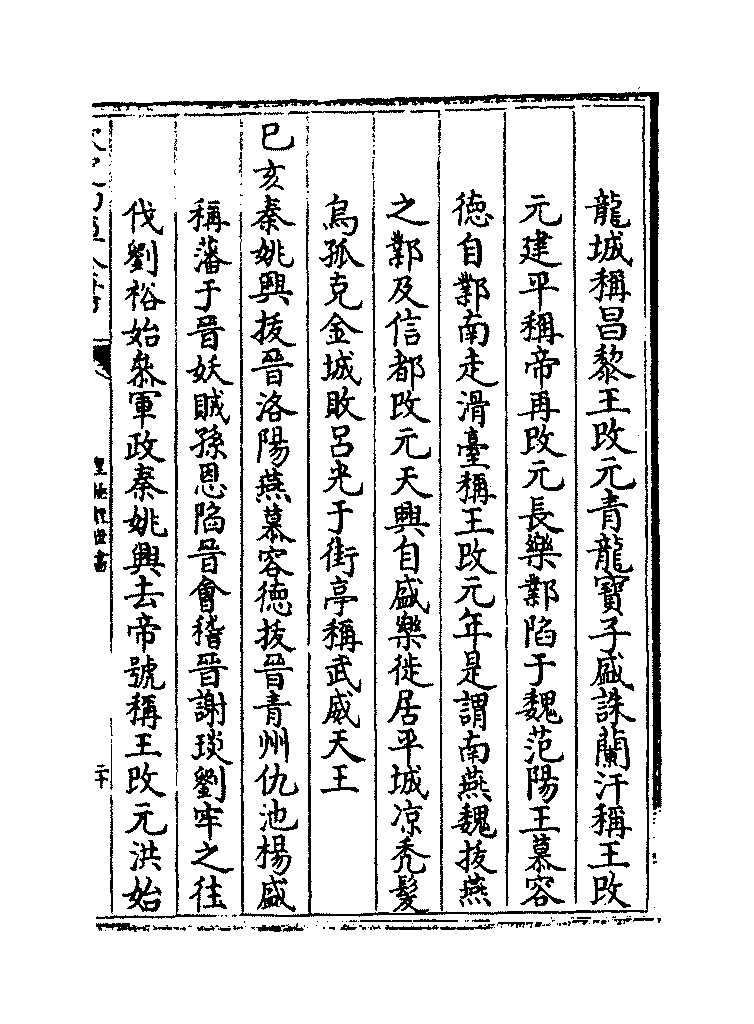 龍城稱昌黎王改元青龍寶子盛誅蘭汗稱王改
元建平稱帝再改元長樂鄴陷于魏范陽王慕容
德自鄴南走滑臺稱王改元年是謂南燕魏拔燕
之鄴及信都改元天興自盛樂徙居平城凉秃髮
烏孤克金城敗呂光于街亭稱武威天王
己亥秦姚興拔晉洛陽燕慕容徳拔晉青州仇池楊盛
稱藩于晉妖賊孫恩陷晉會稽晉謝琰劉牢之往
伐劉裕始叅軍政秦姚興去帝號稱王改元洪始
皇極經世書
二十